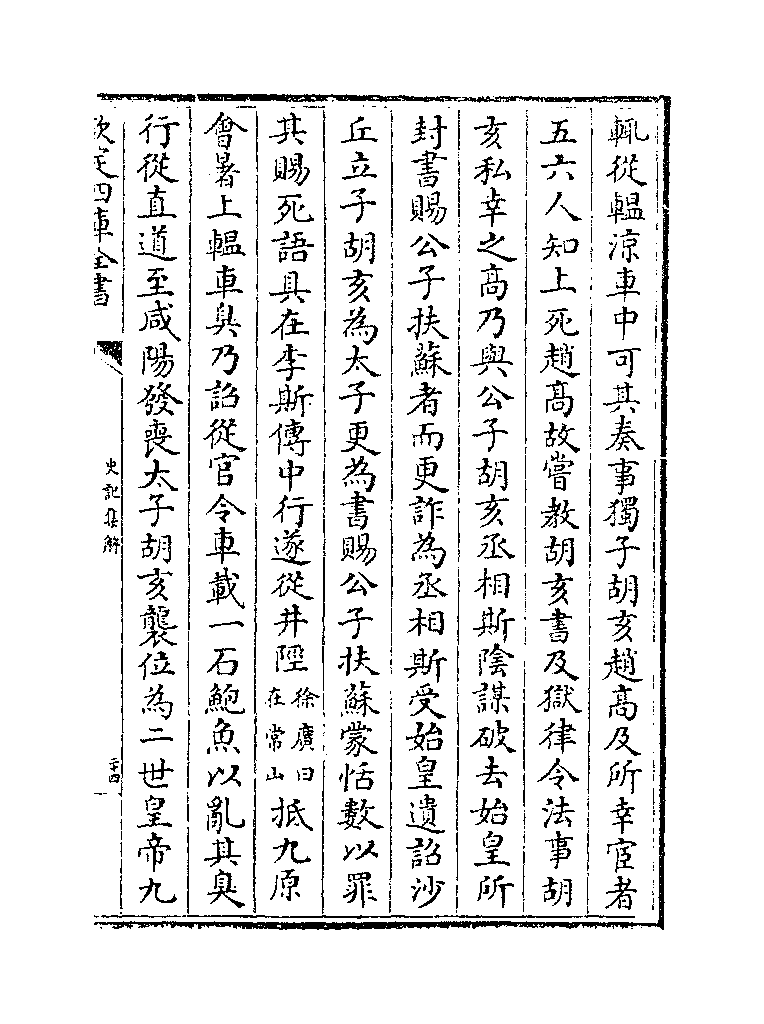 輒從轀涼車中可其奏事獨子胡亥趙高及所幸宦者
五六人知上死趙高故嘗教胡亥書及獄律令法事胡
亥私幸之高乃與公子胡亥丞相斯陰謀破去始皇所
封書賜公子扶蘇者而更詐為丞相斯受始皇遺詔沙
丘立子胡亥為太子更為書賜公子扶蘇蒙恬數以罪
其賜死語具在李斯傳中行遂從井陘徐廣曰在常山抵九原
會暑上轀車臭乃詔從官令車載一石鮑魚以亂其臭
行從直道至咸陽發喪太子胡亥襲位為二世皇帝九
欽定四庫全書
史記集解
二十四